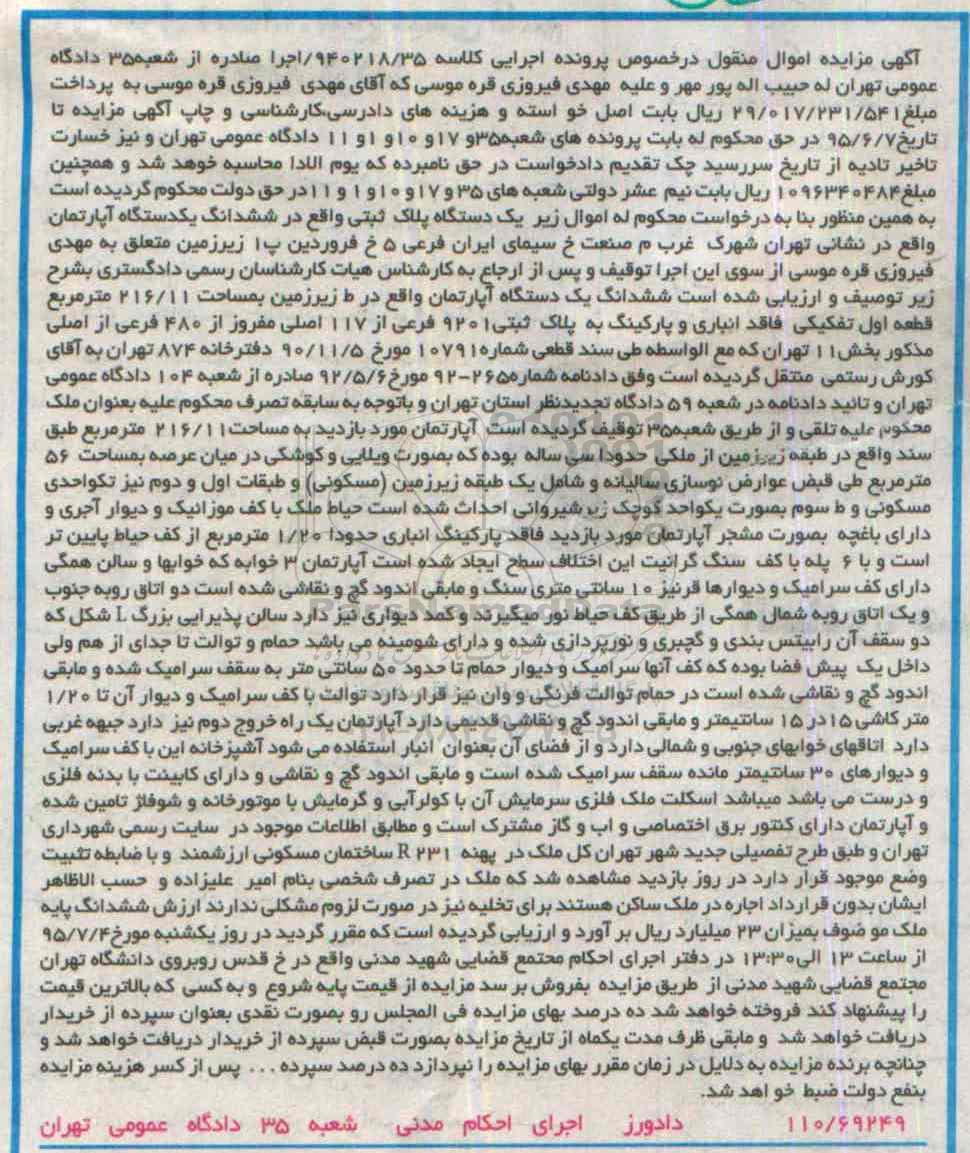 آگهی مزایده اموال منقول درخصوص پرونده اجرایی کلاسه ۹۴۰۲۱۸/۳۵/اجرا صادره از شعبه۳۵ دادگاه
عمومی تهران له حبیب اله پور مهر و علیه مهدی فیروزی قره موسی که آقای مهدی فیروزی قره موسی به پرداخت
مبلغ۲۹/۰۱۷/۲۳۱/۵۴۱ ریال بابت اصل خو استه و هزینه های دادرسی،کارشناسی و چاپ آگهی مزایده تا
تاریخ۹۵/۶/۷ در حق محکوم له بابت پرونده های شعبه۳۵و ۱۷و ۱۰و ۱و ۱۱ دادگاه عمومی تهران و نیز خسارت
تاخیر تادیه از تاریخ سررسید چک تقدیم دادخواست در حق نامبرده که یوم الادا محاسبه خوهد شد و همچنین
مبلغ۱۰۹۶۳۴۰۴۸۴ ریال بابت نیم عشر دولتی شعبه های ۳۵ و ۱۷و ۱۰و ۱ و ۱۱در حق دولت محکوم گردیده است
به همین منظور بنا به درخواست محکوم له اموال زیر یک دستگاه پلاک ثبتی واقع در ششدانگ یکدستگاه آپارتمان
واقع در نشانی تهران شهرک غرب م صنعت خ سیمای ایران فرعی ۵ خ فروردین پ۱ زیرزمین متعلق به مهدی
فیروزی قره موسی از سوی این اجرا توقیف و پس از ارجاع به کارشناس هیات کارشناسان رسمی دادگستری بشرح
زیر توصیف و ارزیابی شده است ششدانگ یک دستگاه آپارتمان واقع در ط زیرزمین بمساحت ۲۱۶/۱۱ مترمربع
قطعه اول تفکیکی فاقد انباری و پارکینگ به پلاک ثبتی۹۲۰۱ فرعی از ۱۱۷ اصلی مفروز از ۴۸۰ فرعی از اصلی
مذکور بخش۱۱ تهران که مع الواسطه طی سند قطعی شماره۱۰۷۹۱ مورخ ۹۰/۱۱/۵ دفترخانه ۸۷۴ تهران به آقای
کورش رستمی منتقل گردیده است وفق دادنامه شماره۲۶۵-۹۲ مورخ۹۲/۵/۶ صادره از شعبه ۱۰۴ دادگاه عمومی
تهران و تائید دادنامه در شعبه ۵۹ دادگاه تجدیدنظر استان تهران و باتوجه به سابقه تصرف محکوم علیه بعنوان ملک
محکوم علیه تلقی و از طریق شعبه۳۵ توقیف گردیده است آپارتمان مورد بازدید به مساحت۲۱۶/۱۱ مترمربع طبق
سند واقع در طبقه زیرزمین از ملکی حدودا سی ساله بوده که بصورت ویلایی و کوشکی در میان عرصه بمساحت ۵۶
مترمربع طی قبض عوارض نوسازی سالیانه و شامل یک طبقه زیرزمین (مسکونی) و طبقات اول و دوم نیز تکواحدی
مسکونی و ط سوم بصورت یکواحد کوچک زیر شیروانی احداث شده است حیاط ملک با کف موزائیک و دیوار آجری و
دارای باغچه بصورت مشجر آپارتمان مورد بازدید فاقد پارکینگ انباری حدودا ۱/۲۰ مترمربع از کف حیاط پایین تر
است و با ۶ پله با کف سنگ گرانیت این اختلاف سطح ایجاد شده است آپارتمان ۳ خوابه که خوابها و سالن همگی
دارای کف سرامیک و دیوارها قرنیز ۱۰ سانتی متری سنگ و مابقی اندود گچ و نقاشی شده است دو اتاق روبه جنوب
و یک اتاق روبه شمال همگی از طریق کف حیاط نور میگیرند و کمد دیواری نیز دارد سالن پذیرایی بزرگ L شکل که
دو سقف آن رابیتس بندی و گچبری و نورپردازی شده و دارای شومینه می باشد حمام و توالت تا جدای از هم ولی
داخل یک پیش فضا بوده که کف آنها سرامیک و دیوار حمام تا حدود ۵۰ سانتی متر به سقف سرامیک شده و مابقی
اندود گچ و نقاشی شده است در حمام توالت فرنگی و وان نیز قرار دارد توالت با کف سرامیک و دیوار آن تا ۱/۲۰
متر کاشی ۱۵در ۱۵ سانتیمتر و مابقی اندود گچ و نقاشی قدیمی دارد آپارتمان یک راه خروج دوم نیز دارد جبهه غربی
دارد اتاقهای خوابهای جنوبی و شمالی دارد و از فضای آن بعنوان انبار استفاده می شود آشپزخانه این با کف سرامیک
و دیوارهای ۳۰ سانتیمتر مانده سقف سرامیک شده است و مابقی اندود گچ و نقاشی و دارای کابینت با بدنه فلزی
و درست می باشد میباشد اسکلت ملک فلزی سرمایش آن با کولرآبی و گرمایش با موتورخانه و شوفاژ تامین شده
و آپارتمان دارای کنتور برق اختصاصی و اب و گاز مشترک است و مطابق اطلاعات موجود در سایت رسمی شهرداری
تهران و طبق طرح تفصیلی جدید شهر تهران کل ملک در پهنه R ۲۳۱ ساختمان مسکونی ارزشمند و با ضابطه تثبیت
وضع موجود قرار دارد در روز بازدید مشاهده شد که ملک در تصرف شخصی بنام امیر علیزاده و حسب الاظاهر
ایشان بدون قرارداد اجاره در ملک ساکن هستند برای تخلیه نیز در صورت لزوم مشکلی ندارند ارزش ششدانگ پایه
ملک مو ضوف بمیزان ۲۳ میلیارد ریال بر آورد و ارزیابی گردیده است که مقرر گردید در روز یکشنبه مورخ۹۵/۷/۴
از ساعت ۱۳ الی۱۳:۳۰ در دفتر اجرای احکام محتمع قضایی شهید مدنی واقع در خ قدس روبروی دانشگاه تهران
مجتمع قضایی شهید مدنی از طریق مزایده بفروش بر سد مزایده از قیمت پایه شروع و به کسی که بالاترین قیمت
را پیشنهاد کند فروخته خواهد شد ده درصد بهای مزایده فی المجلس رو بصورت نقدی بعنوان سپرده از خریدار
دریافت خواهد شد و مابقی ظرف مدت یکماه از تاریخ مزایده بصورت قبض سپرده از خریدار دریافت خواهد شد و
چنانچه برنده مزایده به دلایل در زمان مقرر بهای مزایده را نپردازد ده درصد سپرده ... پس از کسر هزینه مزایده
بنفع دولت ضبط خو اهد شد.
۱۱۰/۶۹۲۴۹ دادورز اجرای احکام مدنی شعبه ۳۵ دادگاه عمومی تهران